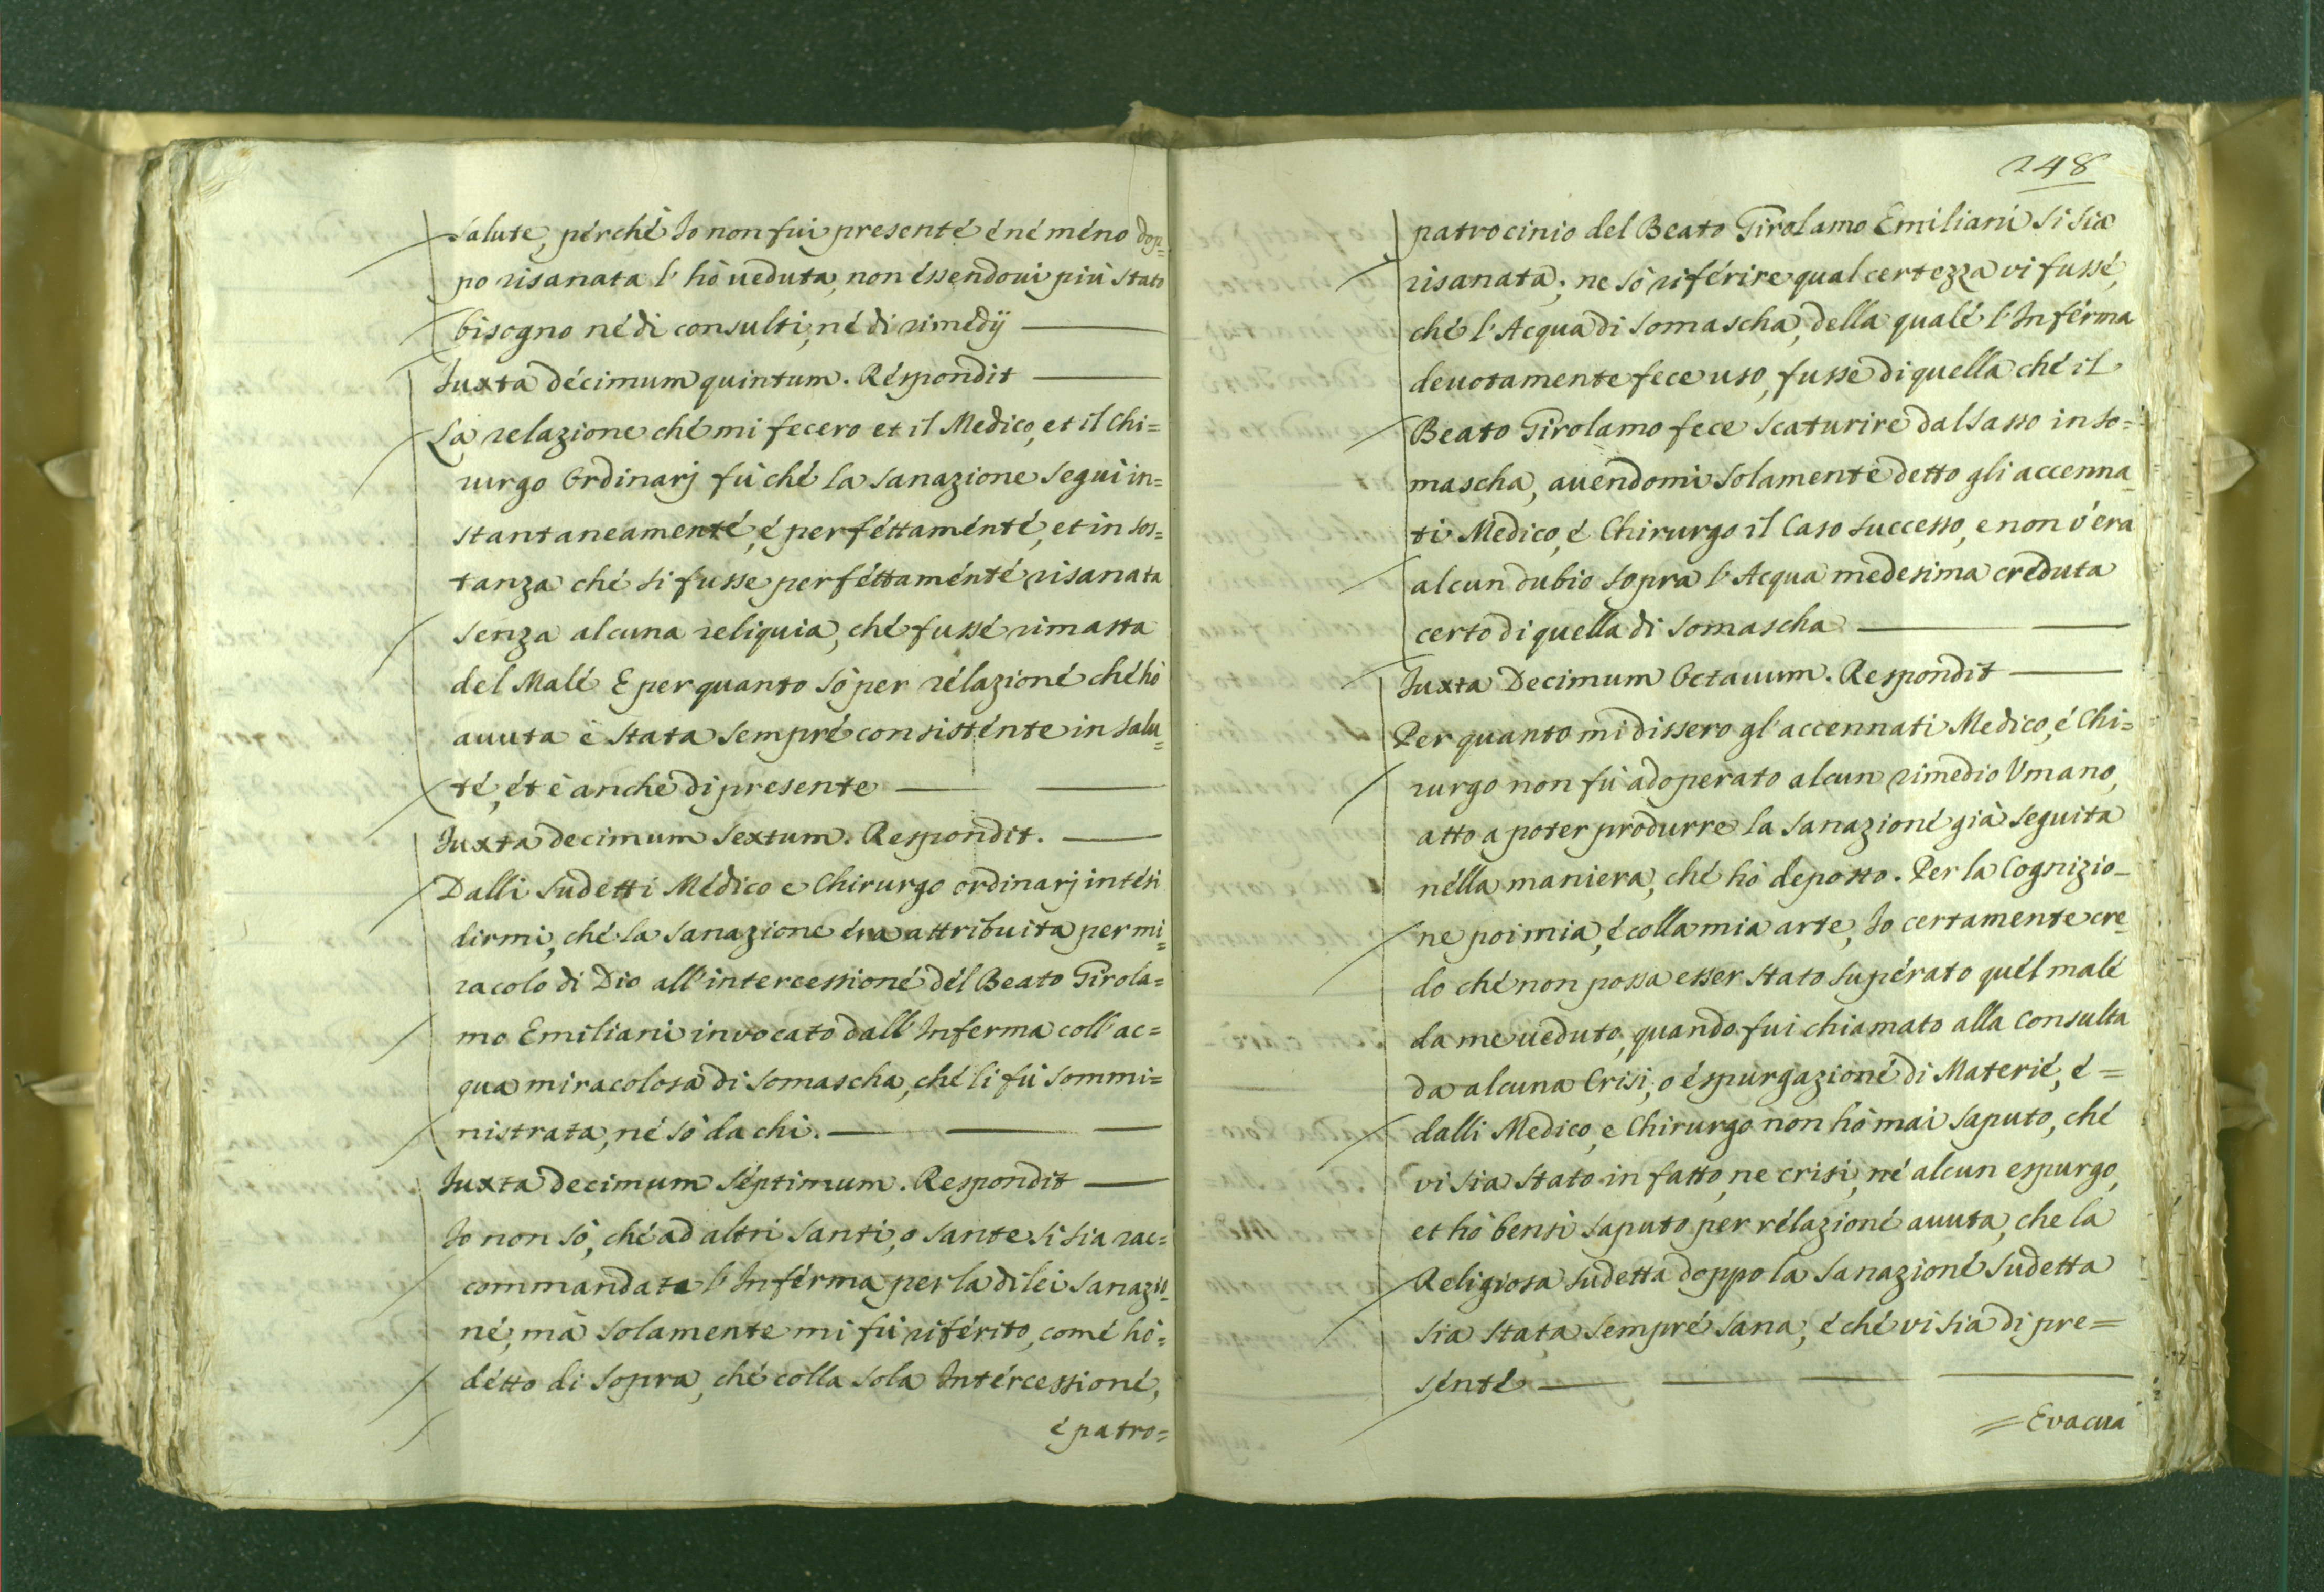 salute, pérché Io non fui presenté é né méno dop=
po risanata l' hò ueduta, non éssendoui più stato
bisogno né di consulti, né di rimedÿ
Iuxta décimum quintum. Réspondit
La relazione ché mi fecero et il Medico, et il Chi=
rurgo Ordinarj fù ché la sanazione seguì in=
stantaneamenté, é perféttaménté, et in sos=
tanza ché si fusse perféttaménté risanata
senza alcuna reliquia, ché fussé rimasta
del Malé E per quanto sò per rélazioné ché hò
auuta è stata sempré consisténte in salu=
té, ét è anche di presente
Iuxta decimum sextum. Respondit.
Dalli sudetti Médico e Chirurgo ordinarj intési
dirmi, ché la sanazione éra attribuita per mi=
racolo di Dio all'intercessioné dél Beato Girola=
mo Emiliani invocato dall'Inferma coll'ac=
qua miracolosa di Somascha, ché li fù sommi=
nistrata, né sò da chi.
Iuxta decimum séptimum. Respondit
Io non sò, ché ad altri Santi, o Sante si sia rac=
commandata l'Inférma per la di lei sanazio=
né, mà solamente mi fù riférito, comé hò=
détto di sopra, ché colla sola Intércessioné,
é patro=
248
patrocinio del Beato Girolamo Emiliani si sia
risanata; ne sò riférire qual certezza vi fussé,
ché l'Acqua di Somascha, della qualé l'Inférma
deuotamente fece uso, fusse di quella ché il
Beato Girolamo fece scaturire dal sasso in So=
mascha, auendomi solamente detto gli accenna=
ti Medico, é Chirurgo il Caso successo, e non v'era
alcun dubio sopra l'Acqua medesima creduta
certo di quella di Somascha
Iuxta Decimum Octauum. Respondit
Per quanto mi dissero gl'accennati Medico, é Chi=
rurgo non fù adoperato alcun rimedio Vmano,
atto a poter produrre la sanazioné già seguita
nélla maniera, ché hò deposto. Per la Cognizio=
ne poi mia, é colla mia arte, Io certamente cre=
do ché non possa esser stato supérato quél malé
da me ueduto, quando fui chiamato alla Consulta
da alcuna Crisi, o éspurgazioné di Materié, é=
dalli Medico, e Chirurgo non hò mai saputo, ché
vi sia stato in fatto, ne crisi, né alcun espurgo,
et hò bensì saputo per rélazioné auuta, che la
Religiosa sudetta doppo la sanazioné sudetta
sia stata sempré sana, é ché vi sia di pre=
sénté
=Evacua